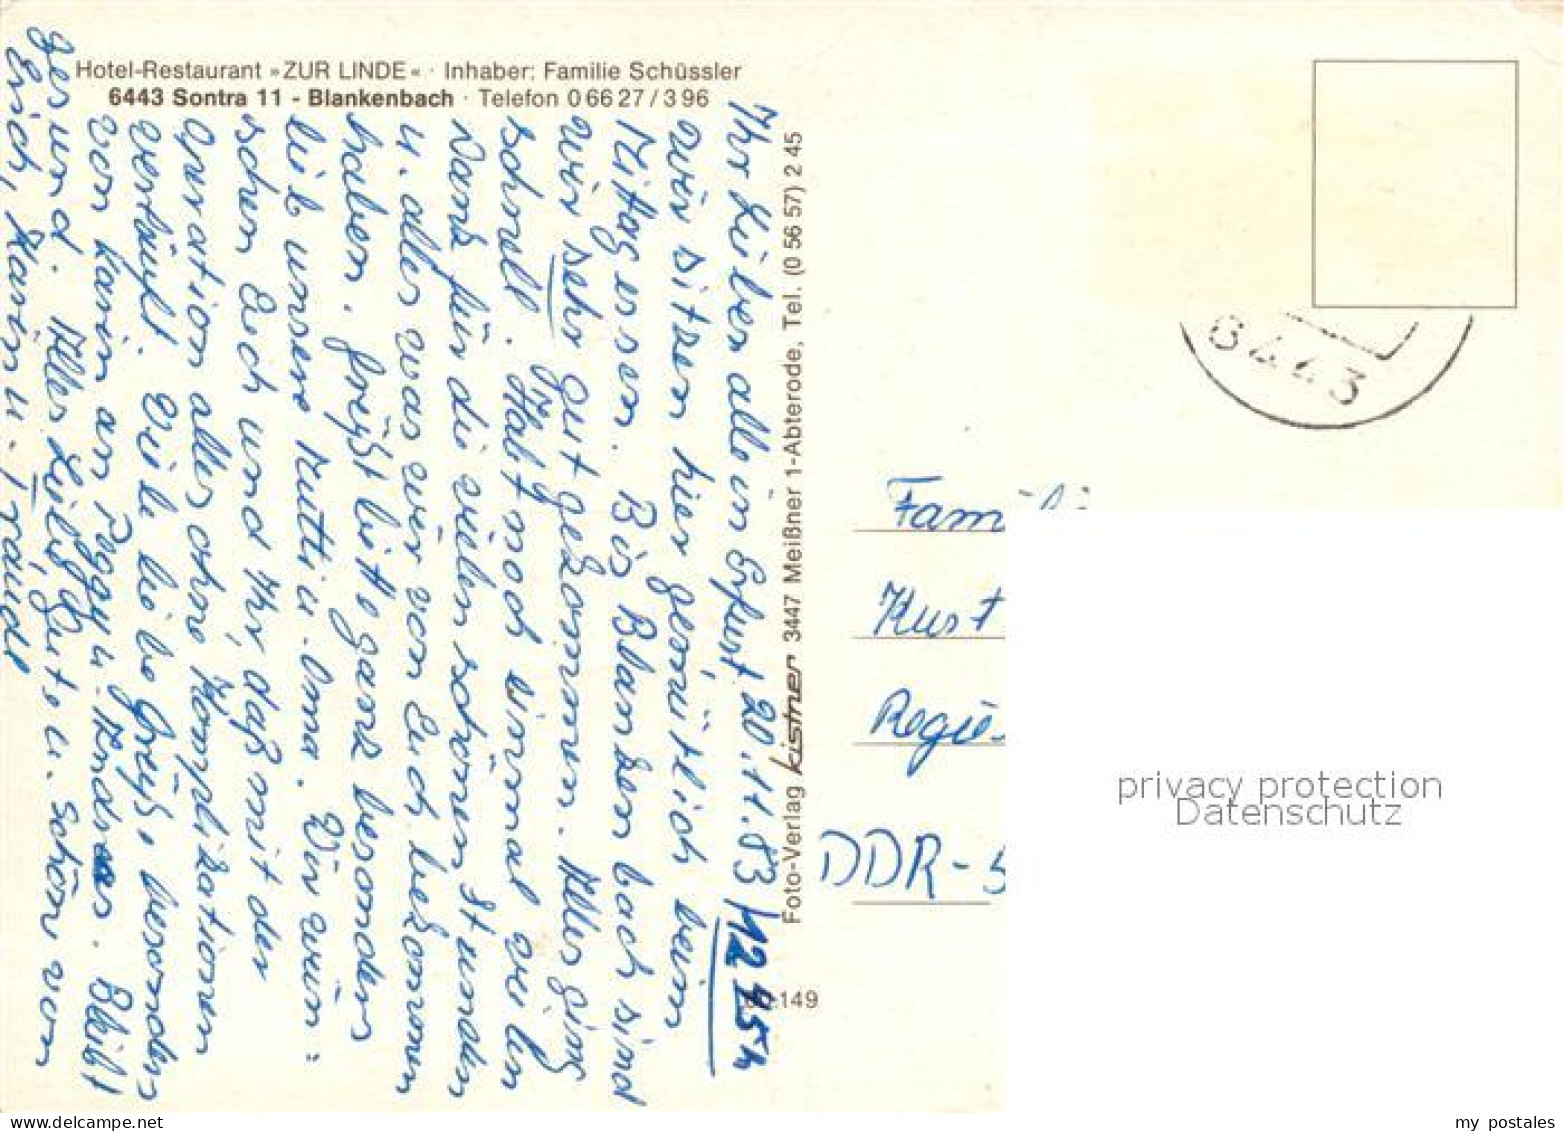 Hotel-Restaurant »ZUR LINDE« · Inhaber: Familie Schüssler
6443 Sontra 11 - Blankenbach · Telefon 0 66 27 / 3 96
Ihr Lieben alle in Erfurt 20.11.83 / 12 45 h
wir sitzen hier gemütlich beim
Mittagessen. Bis Blankenbach sind
wir sehr gut gekommen. Alles ging
schnell. Habt noch einmal vielen
Dank für die vielen schönen Stunden
u. alles was wir von Euch bekommen
haben. Grüßt bitte ganz besonders
lieb unsere Mutti u. Oma. Wir wün=
schen Euch und Ihr, daß mit der
Operation alles ohne Komplikationen
verläuft. Viele liebe Grüße besonders
von Karin an Peggy u. Andreas. Bleibt
gesund. Alles Liebe, Gute u. Schöne von
Erich, Karin u. Traudl
Foto-Verlag kistner 3447 Meißner 1-Abterode, Tel. (0 56 57) 2 45
149
6443
Famili
Kust
Regie
DDR - 5
privacy protection
Datenschutz
my postales